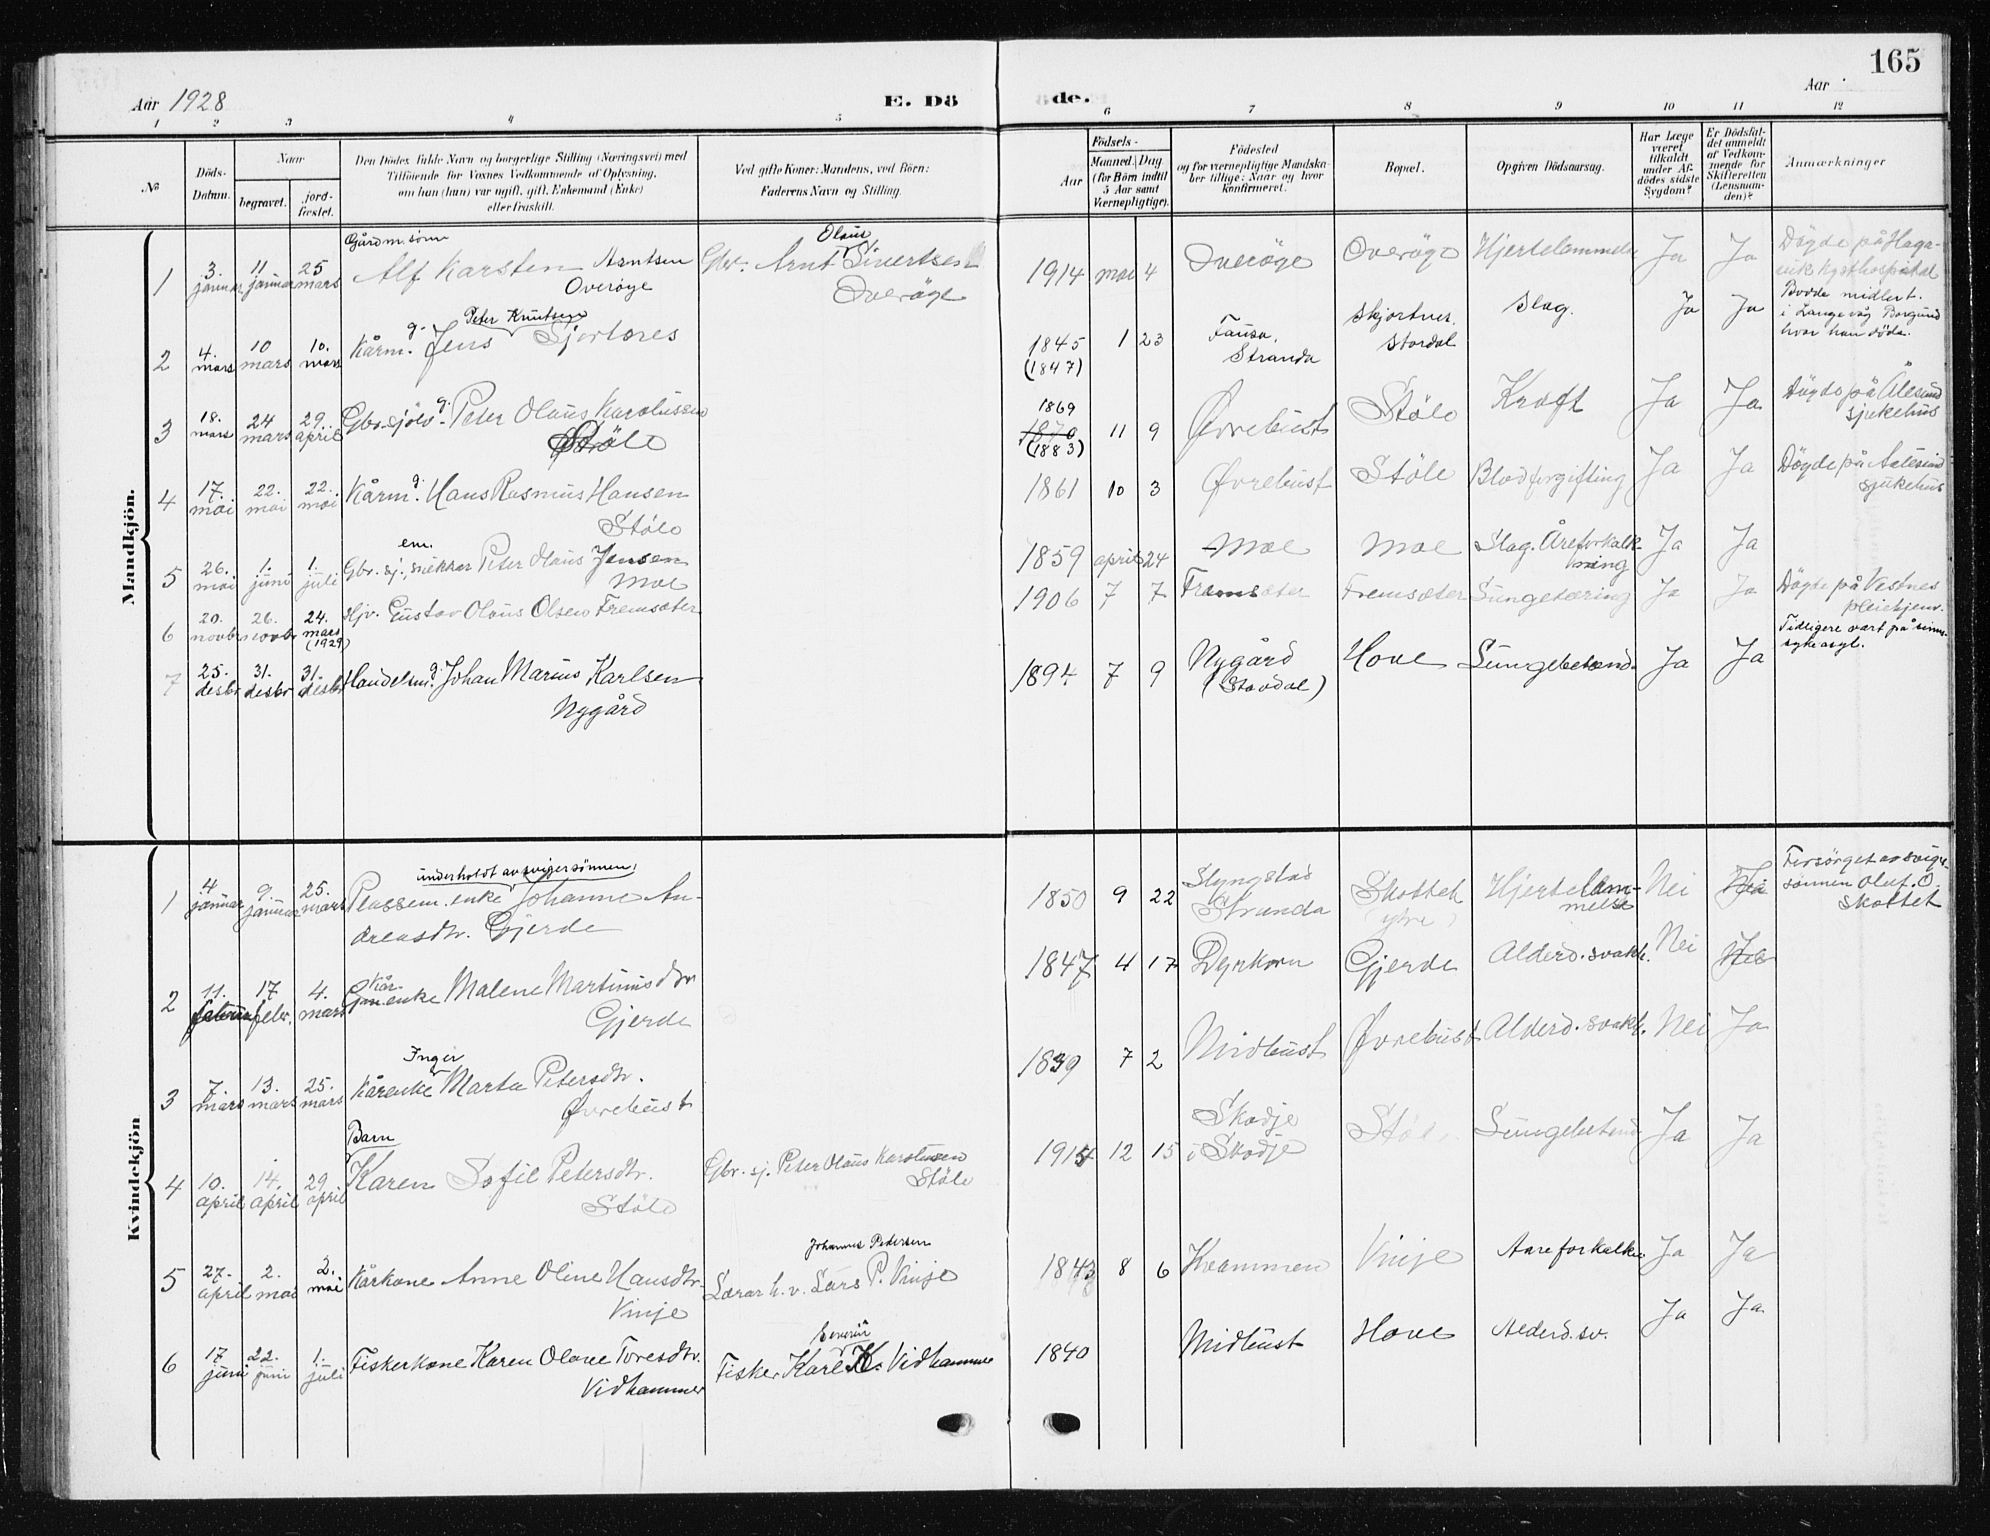 165
Aar 1928
E. Dö
de.
Aar
1 2 3 4 5 6 7 8 9 10 11 12
No
Döds-
Datum.
Naar
begravet.
jord-
fæstet.
Den Dödes fulde Navn og borgerlige Stilling (Næringsvei) med
Tilföiende for Voxnes Vedkommende af Oplysning,
om han (hun) var ugift, gift, Enkemand (Enke)
eller fraskilt.
Ved gifte Koner: Mandens, ved Börn:
Faderens Navn og Stilling.
Födsels-
Aar
Maaned. Dag
(for Börn indtil
5 Aar samt
Værnepligtige).
Födested
og for værnepligtige Mandska-
ber tillige: Naar og hvor
konfirmeret.
Bopæl.
Opgiven Dödsaarsag.
Har Læge
været
tilkaldt
under Af-
dödes sidste
Sygdom?
Er Dödsfal-
det anmeldt
af Vedkom-
mende for
Skifteretten
(Lensman-
den)?
Anmærkninger
Mandkjön.
1 3. januar 11 januar 25 mars
Gårdm. sønn
Alf Karsten Arntsen
Overøye
Gbr. Arnt Olaus Sivertsen
Overøye
1914 mai 4 Overøye Overøye Hjertelammelse Ja Ja
Døyde på Haga-
vik kysthospital
2 4. mars 10 mars 10. mars
Kårm. g. Jens Peter Knutsen Sjortnes
1845
(1847)
1 23 Fausa,
Stranda
Skjortnes.
Stordal
Slag. Ja Ja
Budde midlert.
i Langevåg Borgund
hvor han døde.
3 18. mars 24 mars 29. april
Gbr. sjölv. g. Peter Olaus Karolussen
Støle
1869
1870
(1883)
11 9 Øvrebust Støle Kræft Ja Ja
Døyde på Ålesund
sjukehus
4 17. mai 22. mai 22. mai
Kårm. g. Hans Rasmus Hansen
Støle
1861 10 3 Øvrebust Støle Blodforgifting Ja Ja
Døyde på Aalesund
sjukehus
5 26. mai 1. juni 1. juli
Gbr. sj. snekker em. Peter Olaus Jensen
Moe
1859 april 24 Moe Moe Slag. Åreforkalk-
ning
Ja Ja
6 20. novbr 26. novbr 24. mars (1929)
Hjv. Gustav Olaus Olsen Fremsæter
1906 7 7 Fremsæter Fremsæter Lungetæring Ja Ja
Døyde på Vestnes
pleiehjem.
Tidligere vært på sinns-
sykeasyl.
7 25. desbr 31. desbr 31. desbr
Handelsm. g. Johan Marius Karlsen
Nygård
1894 7 9 Nygård
(Stordal)
Hove Lungebetend. Ja Ja
Kvindekjön
1 4 januar 9. januar 25. mars
underholdt av svigersønnen
Plassem. enke Johanne An-
dreasdtr. Gjerde
1850 9 22 Slyngstad
Stranda
Skottet
(ytre)
Hjertelam-
melse
Nei
Forsørget av sviger-
sønnen Oluf. O.
Skottet
2 11. februar 17 febr. 4. mars
Kår-
enke Malene Martinusdtr
Gjerde
1847 4 17 Dyrkorn Gjerde Alderd. svakh. Nei
3 7. mars 13. mars 25. mars
Kårenke Inger Marta Petersdtr.
Øvrebust
1839 7 2 Midtbust Øvrebust Alderd. svakh. Nei Ja
4 10. april 14. april 29. april
Barn
Karen Sofie Petersdtr.
Støle
Gbr. sj. Peter Olaus Karolussen
Støle
1915 12 15 Skodje
i Skodje
Støle Lungebetend Ja Ja
5 27. april 2. mai 2. mai
Kårkone Anne Oline Hansdtr.
Vinje
Johannes Pedersen
Lærar h. v. Lars P. Vinje
1843 8 6 Kvammen Vinje Aareforkalkn Ja Ja
6 17 juni 22. juni 1. juli
Fiskerkone Karen Olave Toresdtr.
Vidhammer
Fisker Karl Severin K. Vidhammer
1840 Midtbust Hove Alderd. sv. Ja Ja